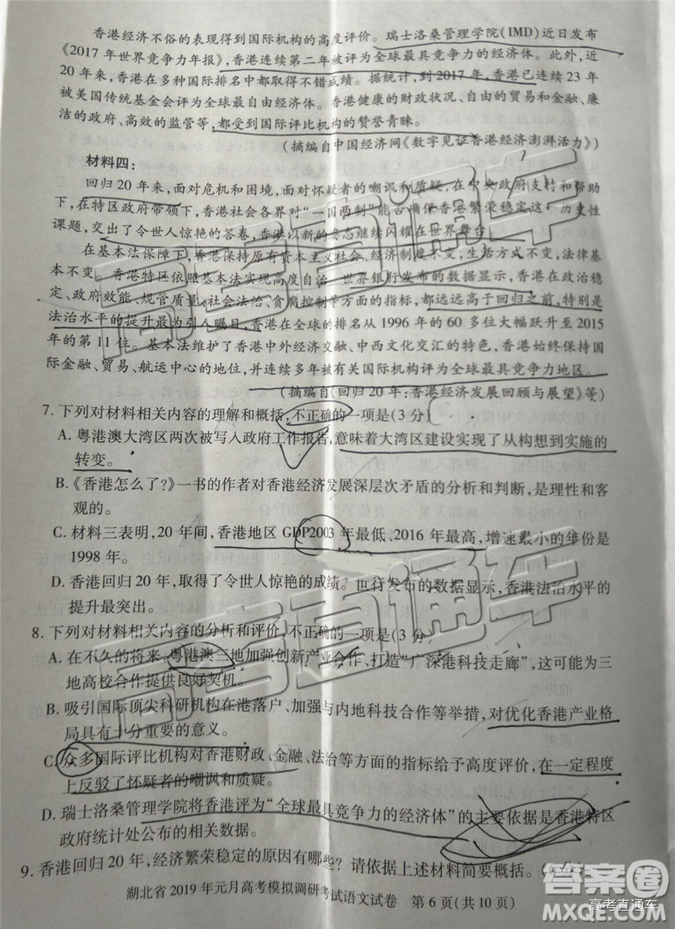 香港经济不俗的表现得到国际机构的高度评价。瑞士洛桑管理学院(IMD)近日发布
《2017年世界竞争力年报》,香港连续第二年被评为全球最具竞争力的经济体。此外,近
20年来,香港在多种国际排名中都取得不错成绩。据统计,到2017年,香港已连续23年
被美国传统基金会评为全球最自由经济体。香港健康的财政状况、自由的贸易和金融、廉
洁的政府、高效的监管等,都受到国际评比机构的赞誉青睐。
(摘编自中国经济网《数字见证香港经济澎湃活力》)
材料四:
回归20年来,面对危机和困境,面对怀疑者的嘲讽和质疑,在中央政府支持和帮助
下,在特区政府带领下,香港社会各界对“一国两制”能否确保香港繁荣稳定这一历史性
课题,交出了令世人惊艳的答卷,香港以新的姿态继续闪耀在世界舞台。
在基本法保障下,香港保持原有资本主义社会、经济制度不变,生活方式不变,法律基
本不变。香港特区依照基本法实现高度自治。世界银行发布的数据显示,香港在政治稳
定、政府效能、规管质量、社会法治、贪腐控制等方面的指标,都远远高于回归之前,特别是
法治水平的提升最为引人瞩目,香港在全球的排名从1996年的60多位大幅跃升至2015
年的第11位。基本法维护了香港中外经济交融、中西文化交汇的特色,香港始终保持国
际金融、贸易、航运中心的地位,并连续多年被有关国际机构评为全球最具竞争力地区。
(摘编自《回归20年:香港经济发展回顾与展望》等)
7.下列对材料相关内容的理解和概括,不正确的一项是(3分)
A.粤港澳大湾区两次被写入政府工作报告,意味着大湾区建设实现了从构想到实施的
转变。
B.《香港怎么了?》一书的作者对香港经济发展深层次矛盾的分析和判断,是理性和客
观的。
C.材料三表明,20年间,香港地区GDP2003年最低、2016年最高,增速最小的年份是
1998年。
D.香港回归20年,取得了令世人惊艳的成绩。世行发布的数据显示,香港法治水平的
提升最突出。
8.下列对材料相关内容的分析和评价,不正确的一项是(3分)
A.在不久的将来,粤港澳三地加强创新产业合作、打造“广深港科技走廊”,这可能为三
地高校合作提供良好契机。
B.吸引国际顶尖科研机构在港落户、加强与内地科技合作等举措,对优化香港产业格
局具有十分重要的意义。
C.众多国际评比机构对香港财政、金融、法治等方面的指标给予高度评价,在一定程度
上反驳了怀疑者的嘲讽和质疑。
D.瑞士洛桑管理学院将香港评为“全球最具竞争力的经济体”的主要依据是香港特区
政府统计处公布的相关数据。
9.香港回归20年,经济繁荣稳定的原因有哪些?请依据上述材料简要概括。
湖北省2019年元月高考模拟调研考试语文试卷 第6页(共10页)
高考直通车
高考直通车
高考直通车
答案圈
MXQE.COM
高考直通车